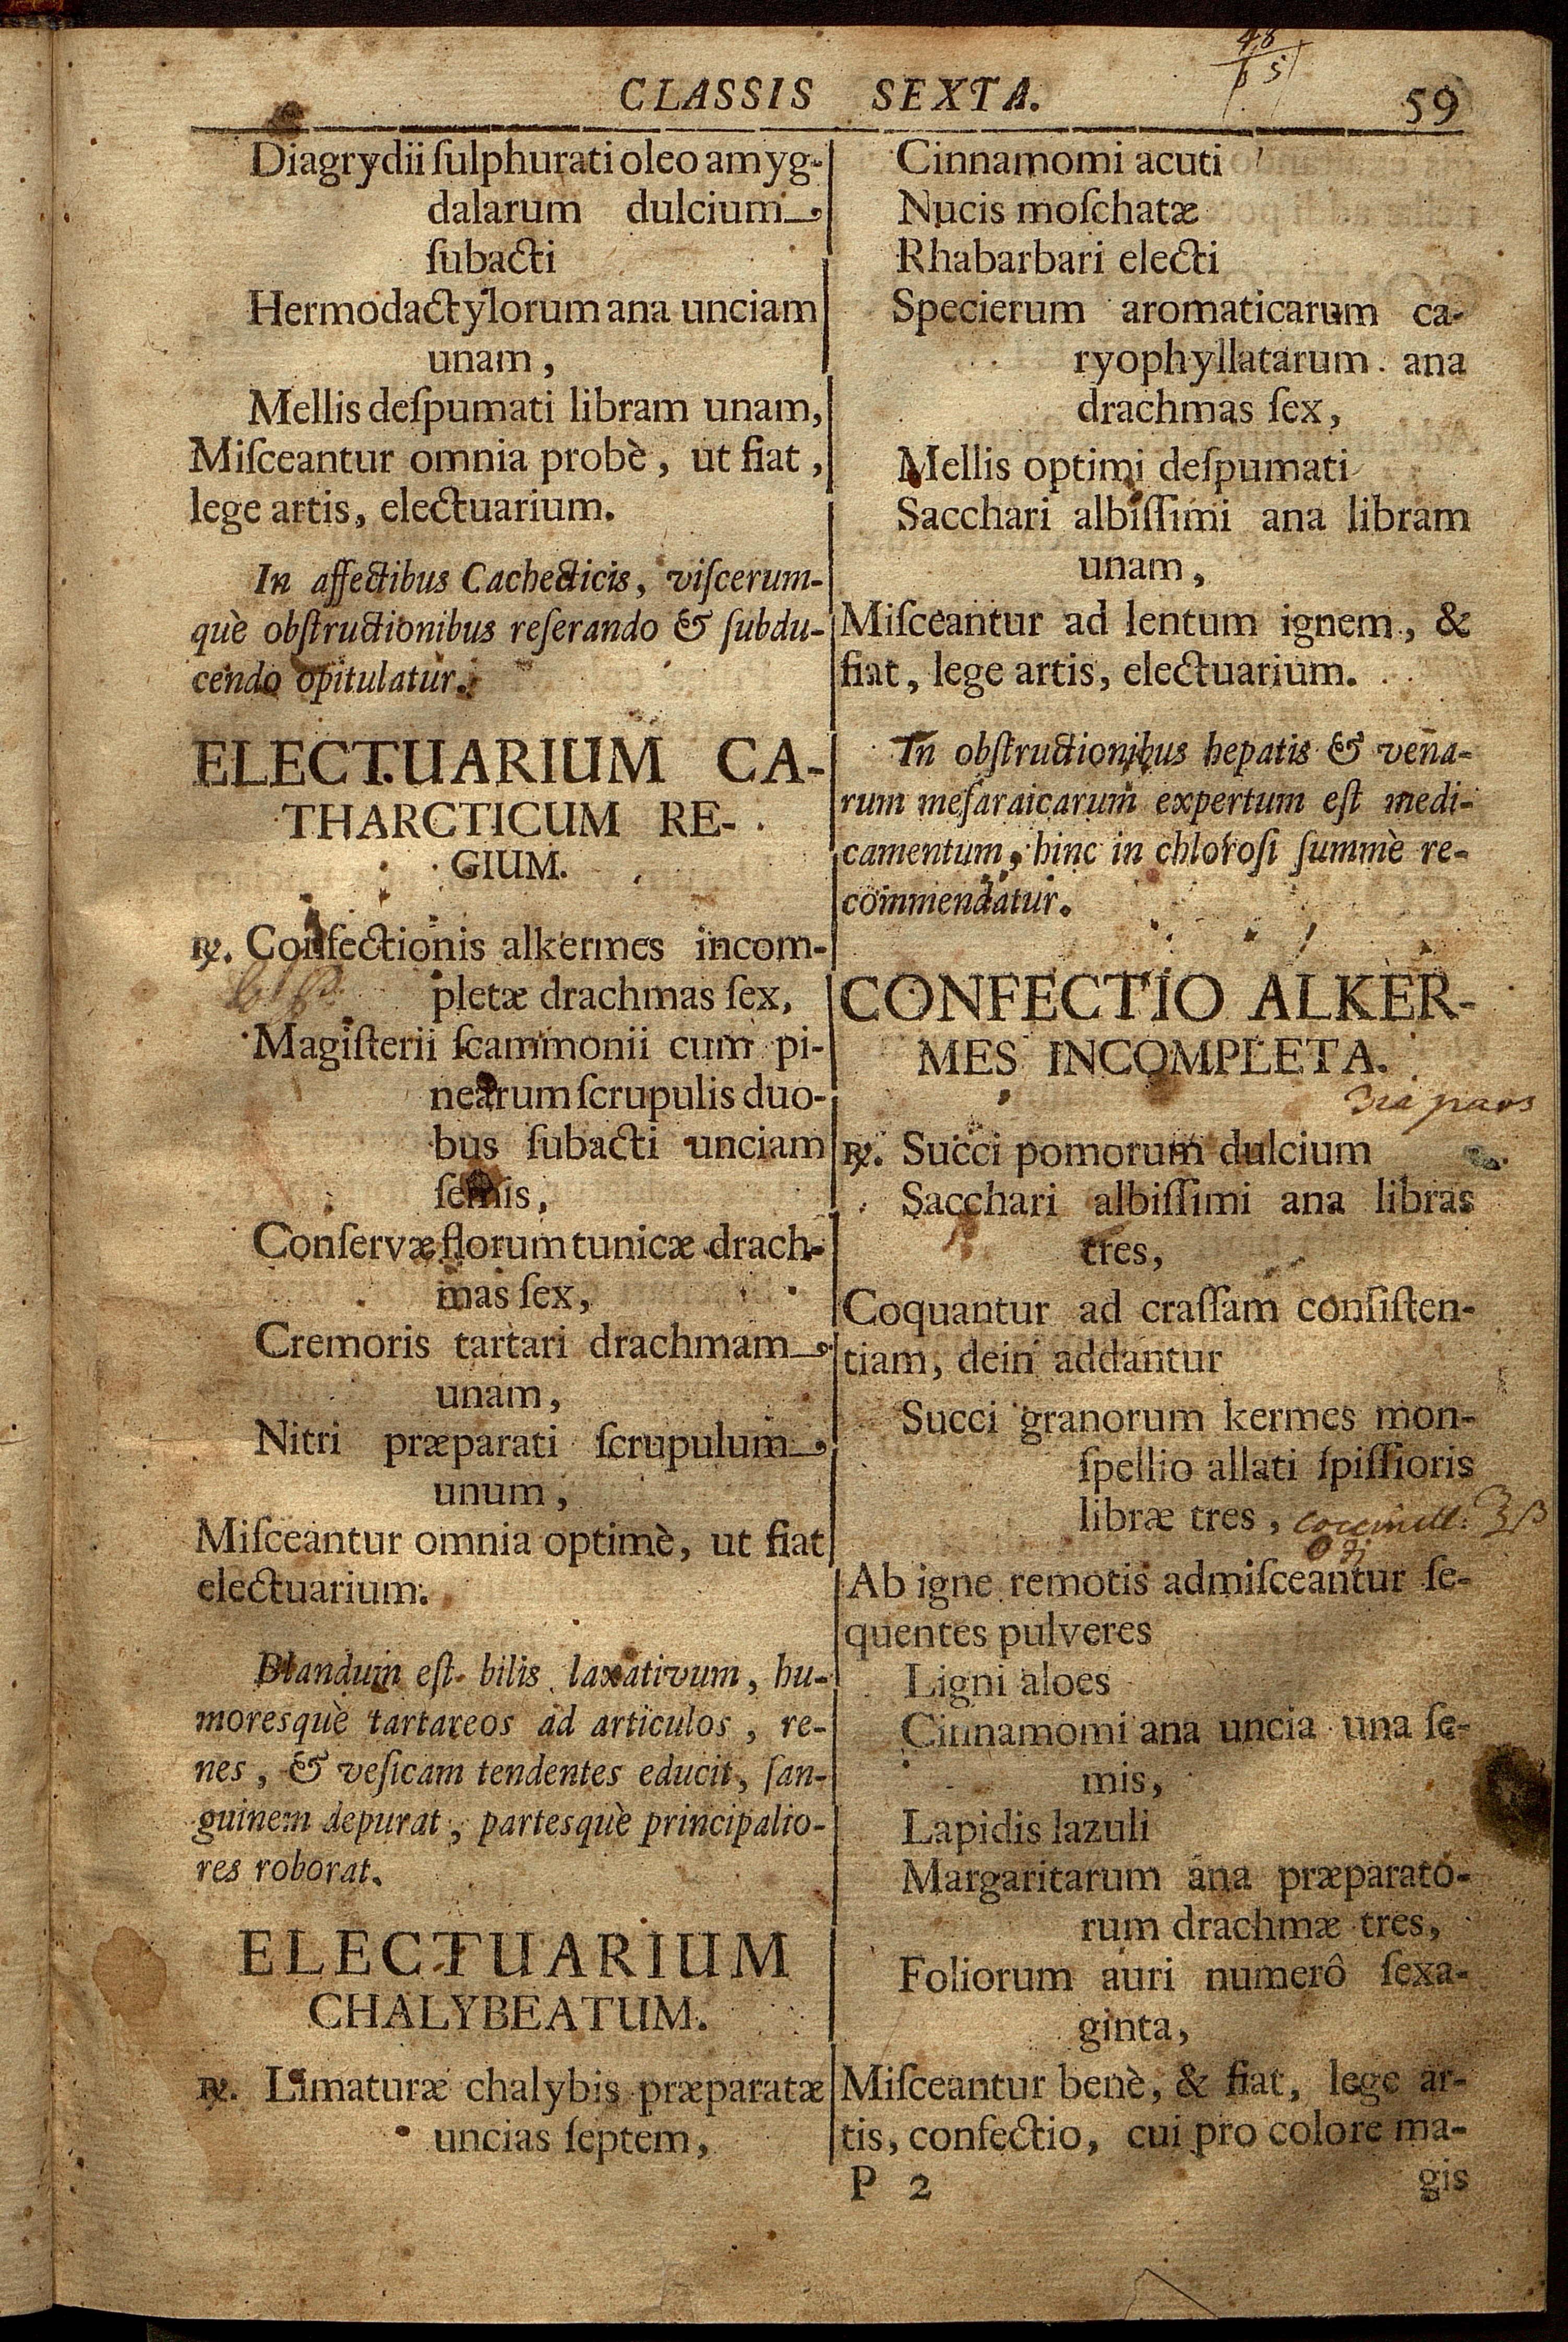 CLASSIS SEXTA. 59
Diagrydii ſulphurati oleo amyg-
dalarum dulcium
ſubacti
Hermodactylorum ana unciam
unam,
Mellis deſpumati libram unam,
Miſceantur omnia probè, ut fiat,
lege artis, electuarium.
In affectibus Cachecticis, viſcerum-
què obſtructionibus reſerando & ſubdu-
cendo opitulatur.
ELECTUARIUM CA-
THARCTICUM RE-
GIUM.
℞. Confectionis alkermes incom-
pletæ drachmas ſex,
Magiſterii ſcammonii cum pi-
nearum ſcrupulis duo-
bus ſubacti unciam
ſemis,
Conſervæ florum tunicæ drach-
mas ſex,
Cremoris tartari drachmam
unam,
Nitri præparati ſcrupulum
unum,
Miſceantur omnia optimè, ut fiat
electuarium.
Blandum eſt bilis laxativum, hu-
moresquè tartareos ad articulos, re-
nes, & veſicam tendentes educit, ſan-
guinem depurat, partesquè principalio-
res roborat.
ELECTUARIUM
CHALYBEATUM.
℞. Limaturæ chalybis præparatæ
uncias ſeptem,
Cinnamomi acuti
Nucis moſchatæ
Rhabarbari electi
Specierum aromaticarum ca-
ryophyllatarum ana
drachmas ſex,
Mellis optimi deſpumati
Sacchari albiſſimi ana libram
unam,
Miſceantur ad lentum ignem, &
fiat, lege artis, electuarium.
In obſtructionibus hepatis & vena-
rum meſaraicarum expertum eſt medi-
camentum, hinc in chloroſi ſummè re-
commendatur.
CONFECTIO ALKER-
MES INCOMPLETA.
3ia pars
℞. Succi pomorum dulcium
Sacchari albiſſimi ana libras
tres,
Coquantur ad craſſam conſiſten-
tiam, dein addantur
Succi granorum kermes mon-
ſpellio allati ſpiſſioris
libræ tres,
Ab igne remotis admiſceantur ſe-
quentes pulveres
Ligni aloes
Cinnamomi ana uncia una ſe-
mis,
Lapidis lazuli
Margaritarum ana præparato-
rum drachmæ tres,
Foliorum auri numerô ſexa-
ginta,
Miſceantur benè, & fiat, lege ar-
tis, confectio, cui pro colore ma-
P 2 gis